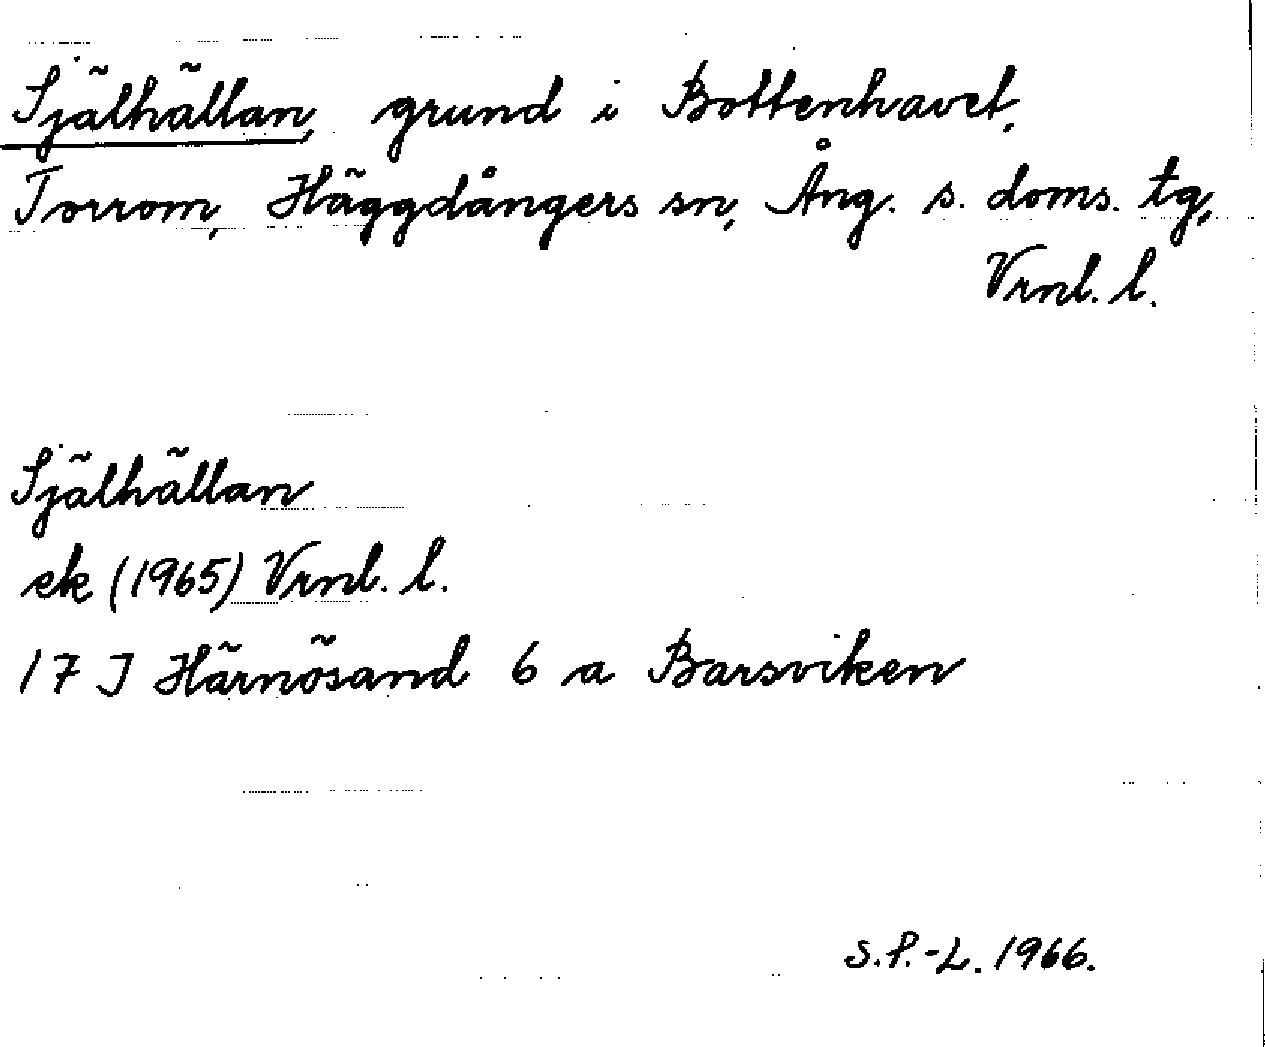 Själhällan, grund i Bottenhavet,
Torrom, Häggdångers sn, Ång. s. doms. tg,
Vrnl. l.
Själhällan
ek (1965) Vrnl. l.
17 I Härnösand 6 a Barsviken
S.P.-L. 1966.